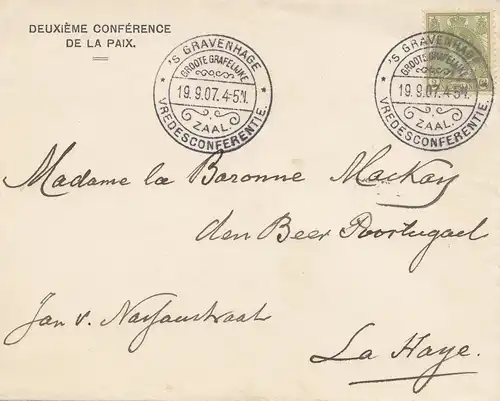 DEUXIÈME CONFÉRENCE
DE LA PAIX.
'S GRAVENHAGE
GROOTE GRAFELIJKE
19.9.07.4-5N.
ZAAL.
VREDESCONFERENTIE.
'S GRAVENHAGE
GROOTE GRAFELIJKE
19.9.07.4-5N.
ZAAL.
VREDESCONFERENTIE.
Madame la Baronne Mackay
den Beer Poortugael
Jan v. Nassaustraat
La Haye.